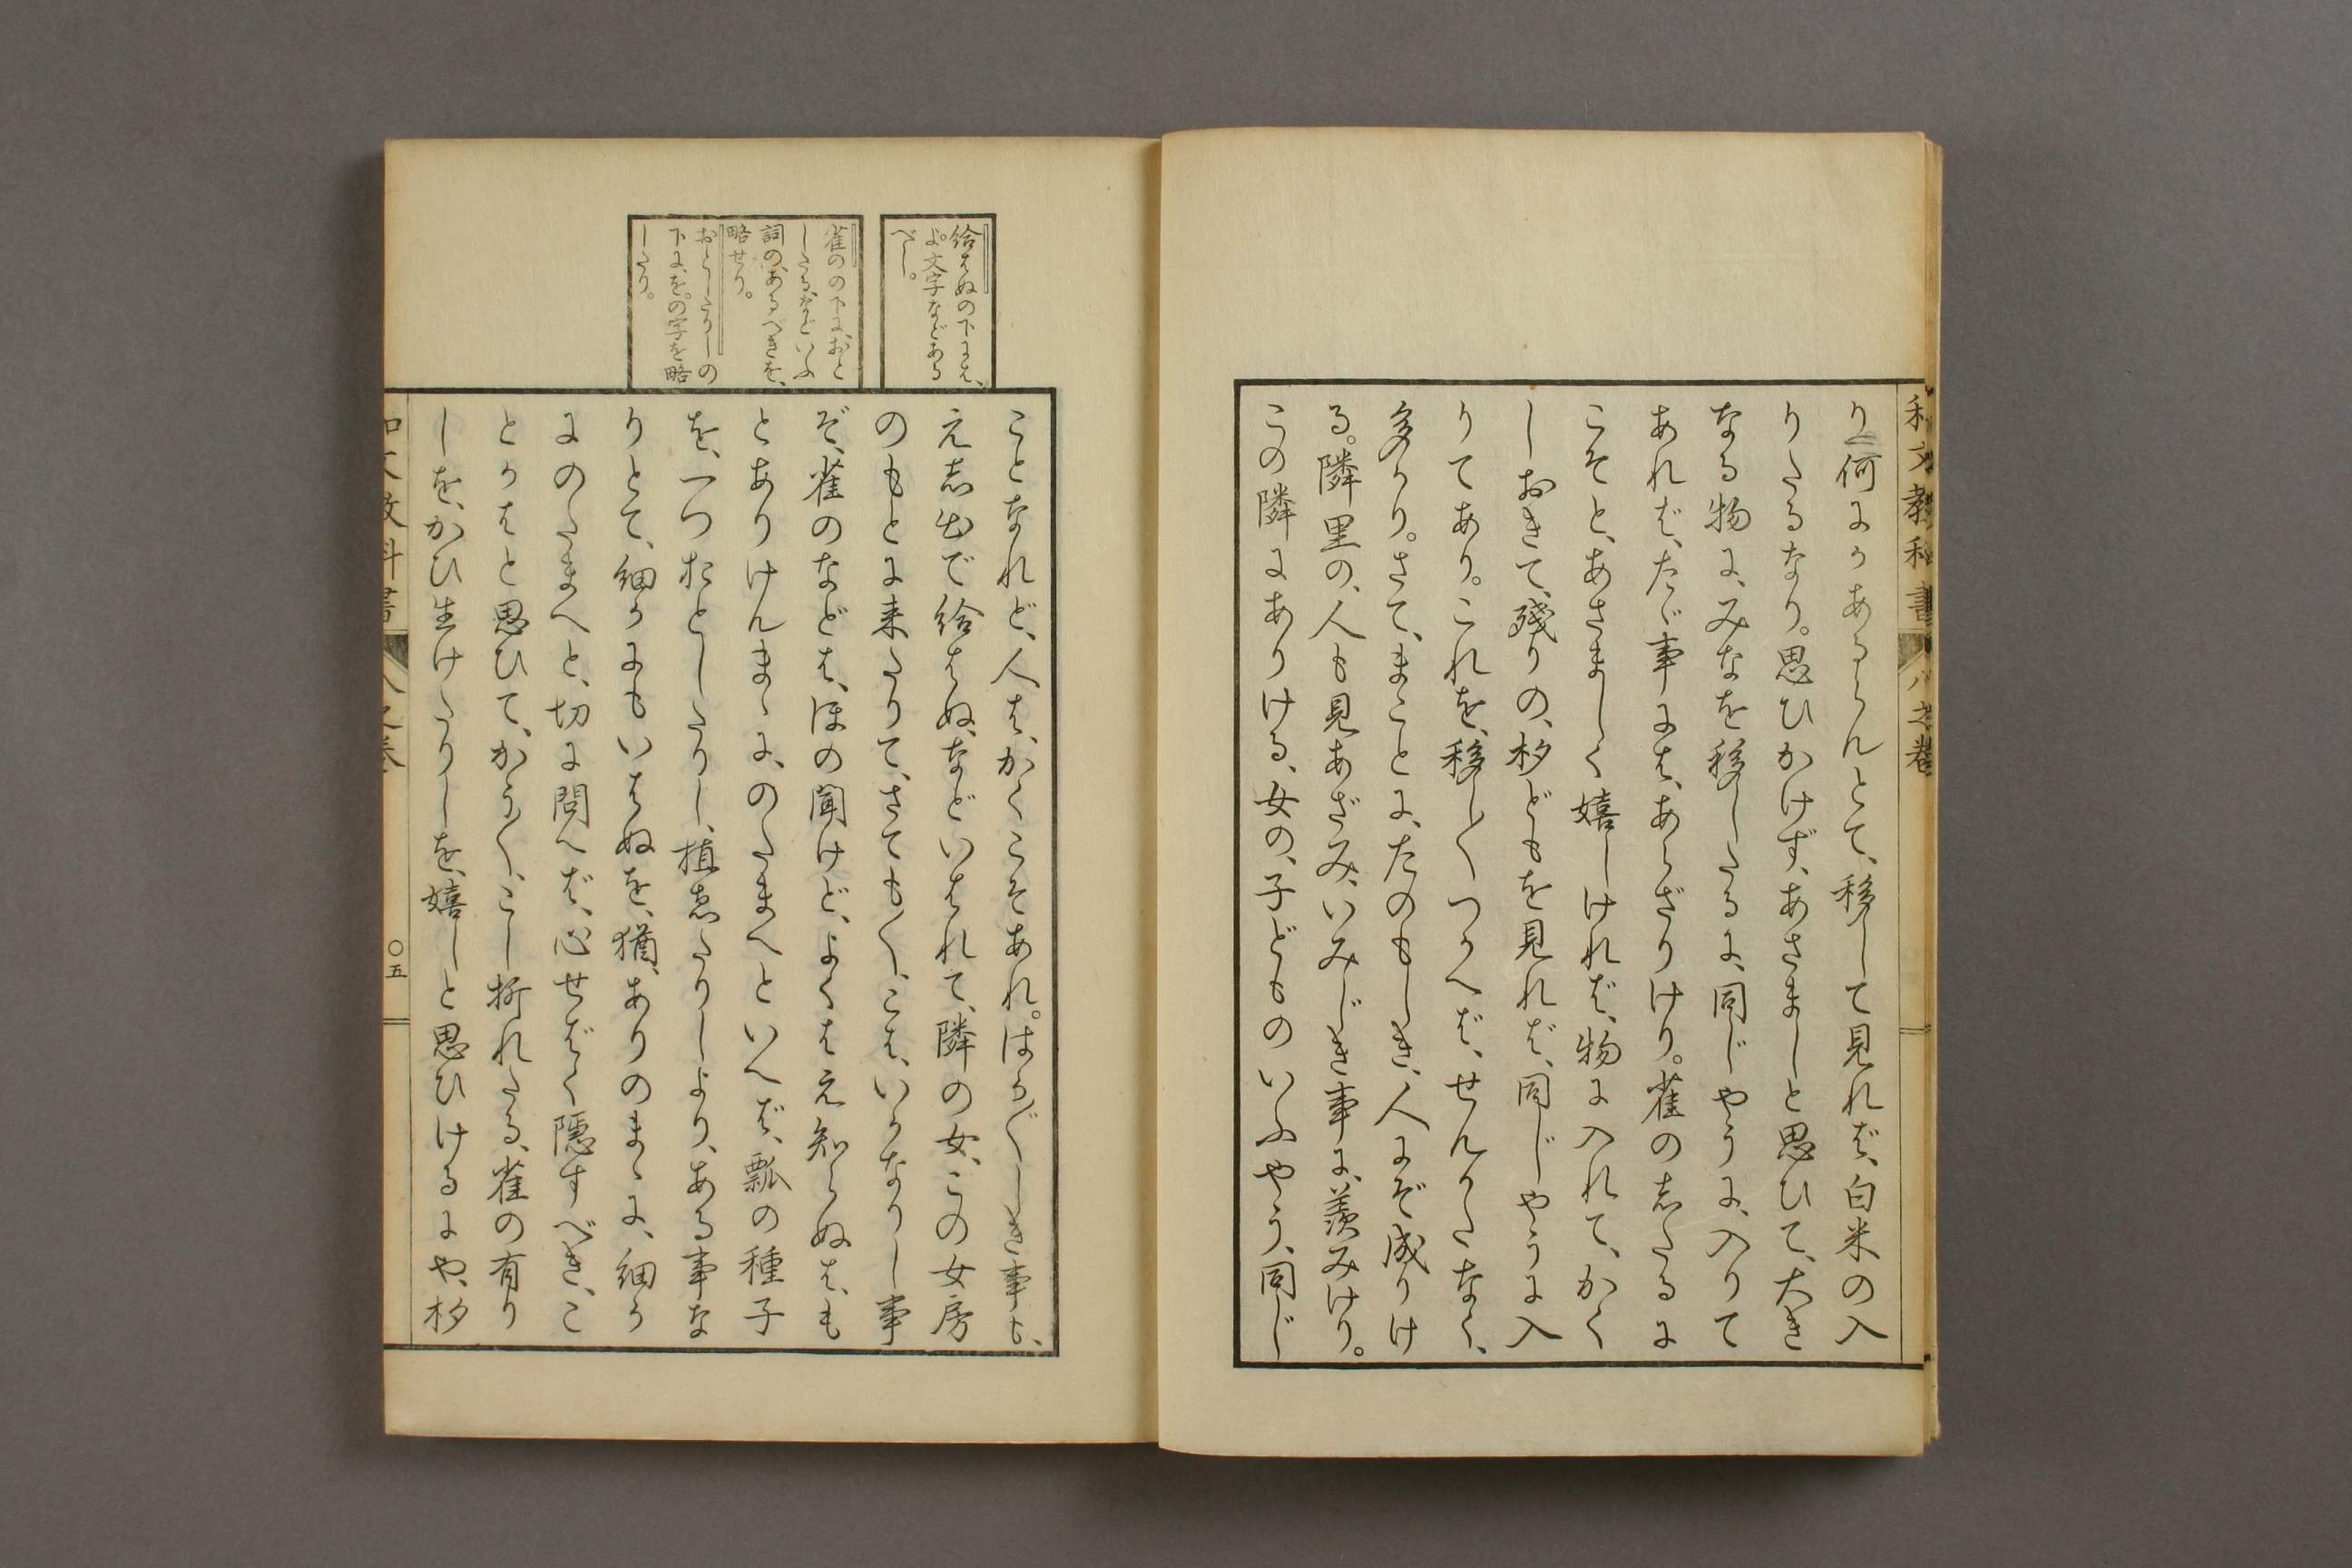 和文教科書 八之巻
り。何にかあるらんとて、移して見れば、白米の入
りたるなり。思ひかけず、あさましと思ひて、大き
なる物に、みなを移したるに、同じやうに、入りて
あれば、たゞ事には、あらざりけり。雀のしたるに
こそと、あさましく嬉しければ、物に入れて、かく
しおきて、残りの、杓どもを見れば、同じやうに入
りてあり。これを、移し〳〵つかへば、せんかたなく、
多かり。さて、まことに、たのもしき、人にぞ成りけ
る。隣里の、人も見あざみ、いみじき事に、羨みけり。
この隣にありける、女の、子どものいふやう、同じ
給はぬの下には、
よ。文字などある
べし。
雀のの下に、おと
したる、などいふ
詞の、あるべきを、
略せり。
おとしたりしの
下に、を。の字を略
したり。
ことなれど、人は、かくこそあれ。はか〴〵しき事も、
えし出で給はぬ、などいはれて、隣の女、この女房
のもとに来たりて、さても〳〵、こは、いかなりし事
ぞ、雀のなどは、ほの聞けど、よくはえ知らぬは、も
とありけんまゝに、のたまへといへば、瓢の種子
を、一つおとしたりし、植ゑたりしより、ある事な
りとて、細かにもいはぬを、猶、ありのまゝに、細か
にのたまへと、切に問へば、心せばく隠すべき、こ
とかはと思ひて、かう〳〵、こし折れたる、雀の有り
しを、かひ生けたりしを、嬉しと思ひけるにや、杓
和文教科書 八之巻 〇五